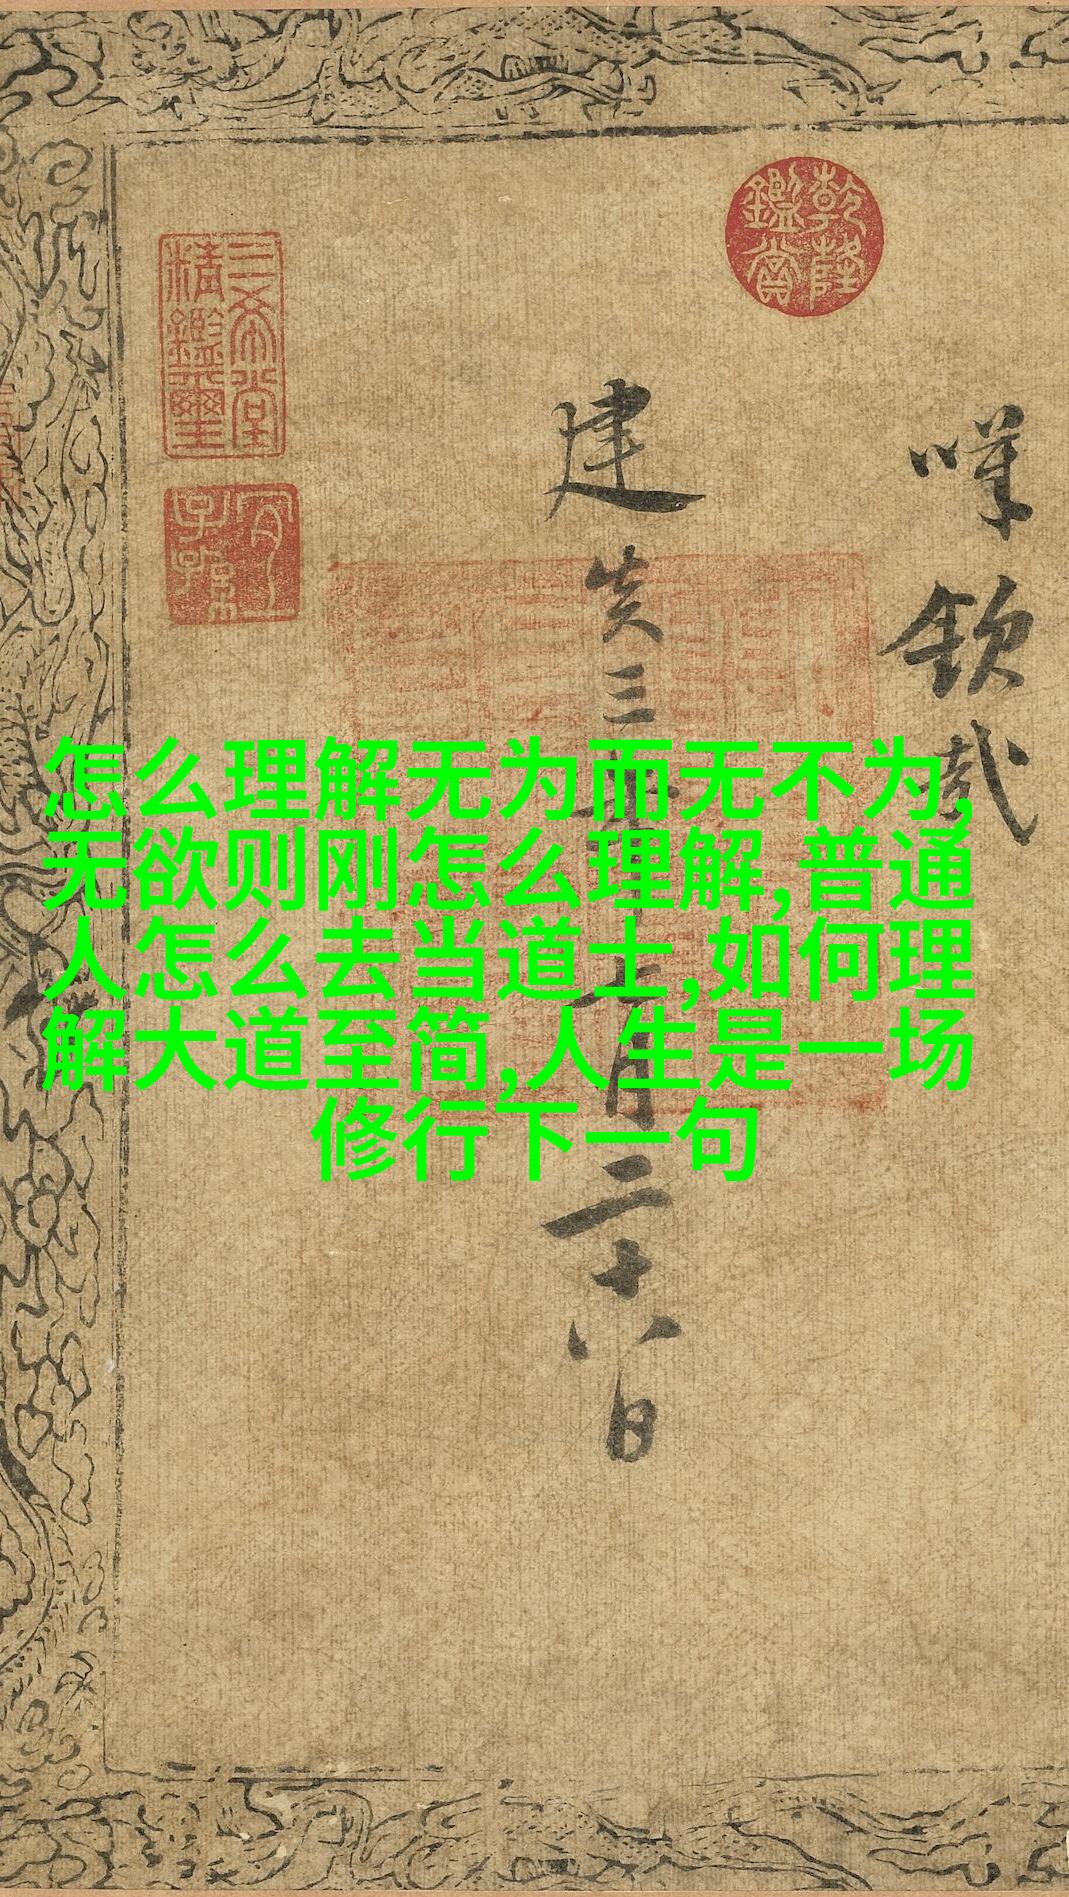 怎么理解无为而无不为,
无欲则刚怎么理解,普通
人怎么去当道士,如何理
解大道至简,人生是一场
修行下一句
乾隆鑑賞
欽哉
建炎三年月二十八日
三希堂精鑑璽
宜子孫